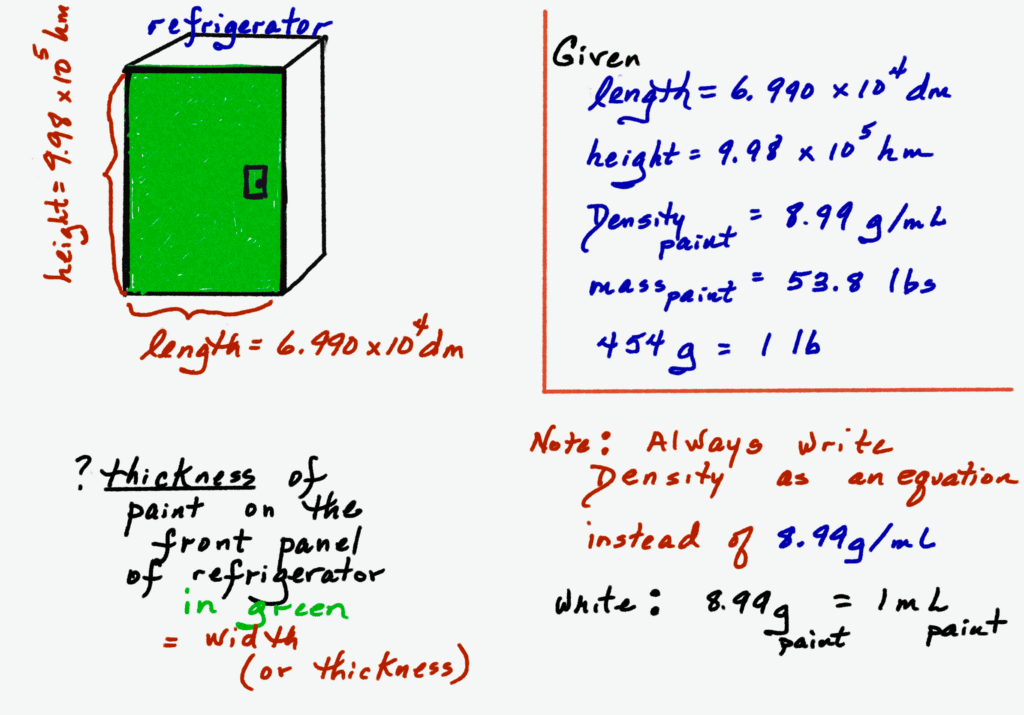 refrigerator
height = 9.98 x 10^5 hm
length = 6.990 x 10^4 dm
Given
length = 6.990 x 10^4 dm
height = 9.98 x 10^5 hm
Density paint = 8.99 g/mL
mass paint = 53.8 lbs
454 g = 1 lb
? thickness of
paint on the
front panel
of refrigerator
in green
= width
(or thickness)
Note: Always write
Density as an equation
instead of 8.99g/mL
write: 8.99g paint = 1 mL paint